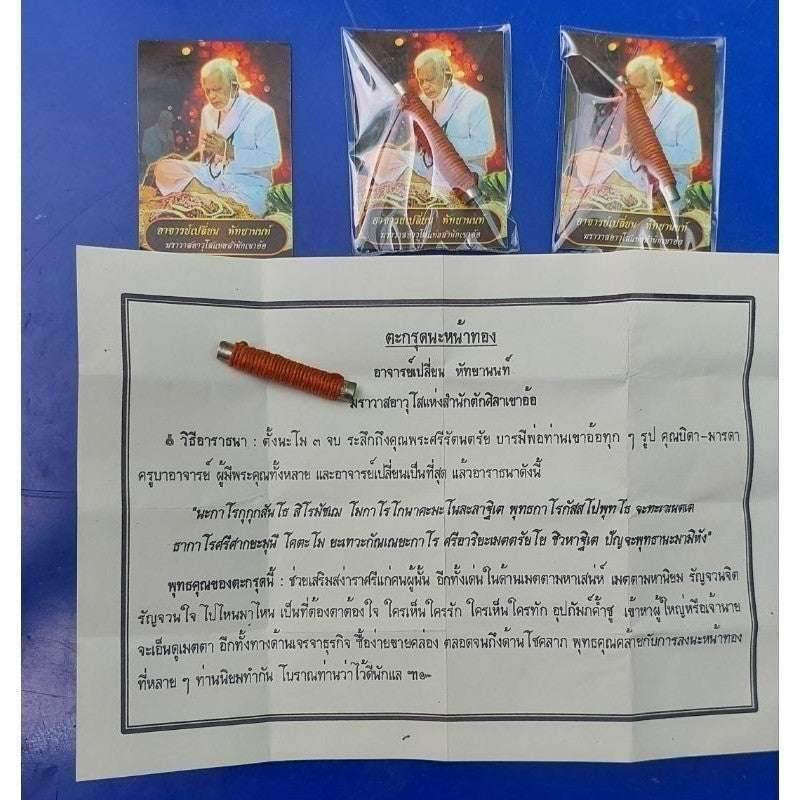 อาจารย์เปลี่ยน หัทยานนท์
ฆราวาสอาวุโสแห่งสำนักเขาอ้อ
อาจารย์เปลี่ยน หัทยานนท์
ฆราวาสอาวุโสแห่งสำนักเขาอ้อ
อาจารย์เปลี่ยน หัทยานนท์
ฆราวาสอาวุโสแห่งสำนักเขาอ้อ
ตะกรุดนะหน้าทอง
อาจารย์เปลี่ยน หัทยานนท์
ฆราวาสอาวุโสแห่งสำนักตักศิลาเขาอ้อ
วิธีอาราธนา : ตั้งนะโม ๓ จบ ระลึกถึงคุณพระศรีรัตนตรัย บารมีพ่อท่านเขาอ้อทุก ๆ รูป คุณบิดา-มารดา
ครูบาอาจารย์ ผู้มีพระคุณทั้งหลาย และอาจารย์เปลี่ยนเป็นที่สุด แล้วอาราธนาดังนี้
"นะกาโรกุกุกสันโธ สิโรมัชเฌ โมกาโรโกนาคะมะโนละลาฐิเต พุทธกาโรกัสสโปพุทโธ จะทะเวเนตเต
ธากาโรศรีศากยะมุนี โคตะโม ยะเทวะกัณเณยะกาโร ศรีอาริยะเมตตรัยโย ชิวหาฐิเต ปัญจะพุทธานะมามิหัง"
พุทธคุณของตะกรุดนี้ : ช่วยเสริมสง่าราศรีแก่คนผู้นั้น อีกทั้งเด่นในด้านเมตตามหาเสน่ห์ เมตตามหานิยม รัญจวนจิต
รัญจวนใจ ไปไหนมาไหน เป็นที่ต้องตาต้องใจ ใครเห็นใครรัก ใครเห็นใครทัก อุปถัมภ์ค้ำชู เข้าหาผู้ใหญ่หรือเจ้านาย
จะเอ็นดูเมตตา อีกทั้งทางด้านเจรจาธุรกิจ ซื้อง่ายขายคล่อง ตลอดจนถึงด้านโชคลาภ พุทธคุณคล้ายกับการลงนะหน้าทอง
ที่หลาย ๆ ท่านนิยมทำกัน โบราณท่านว่าไว้ดีนักแล